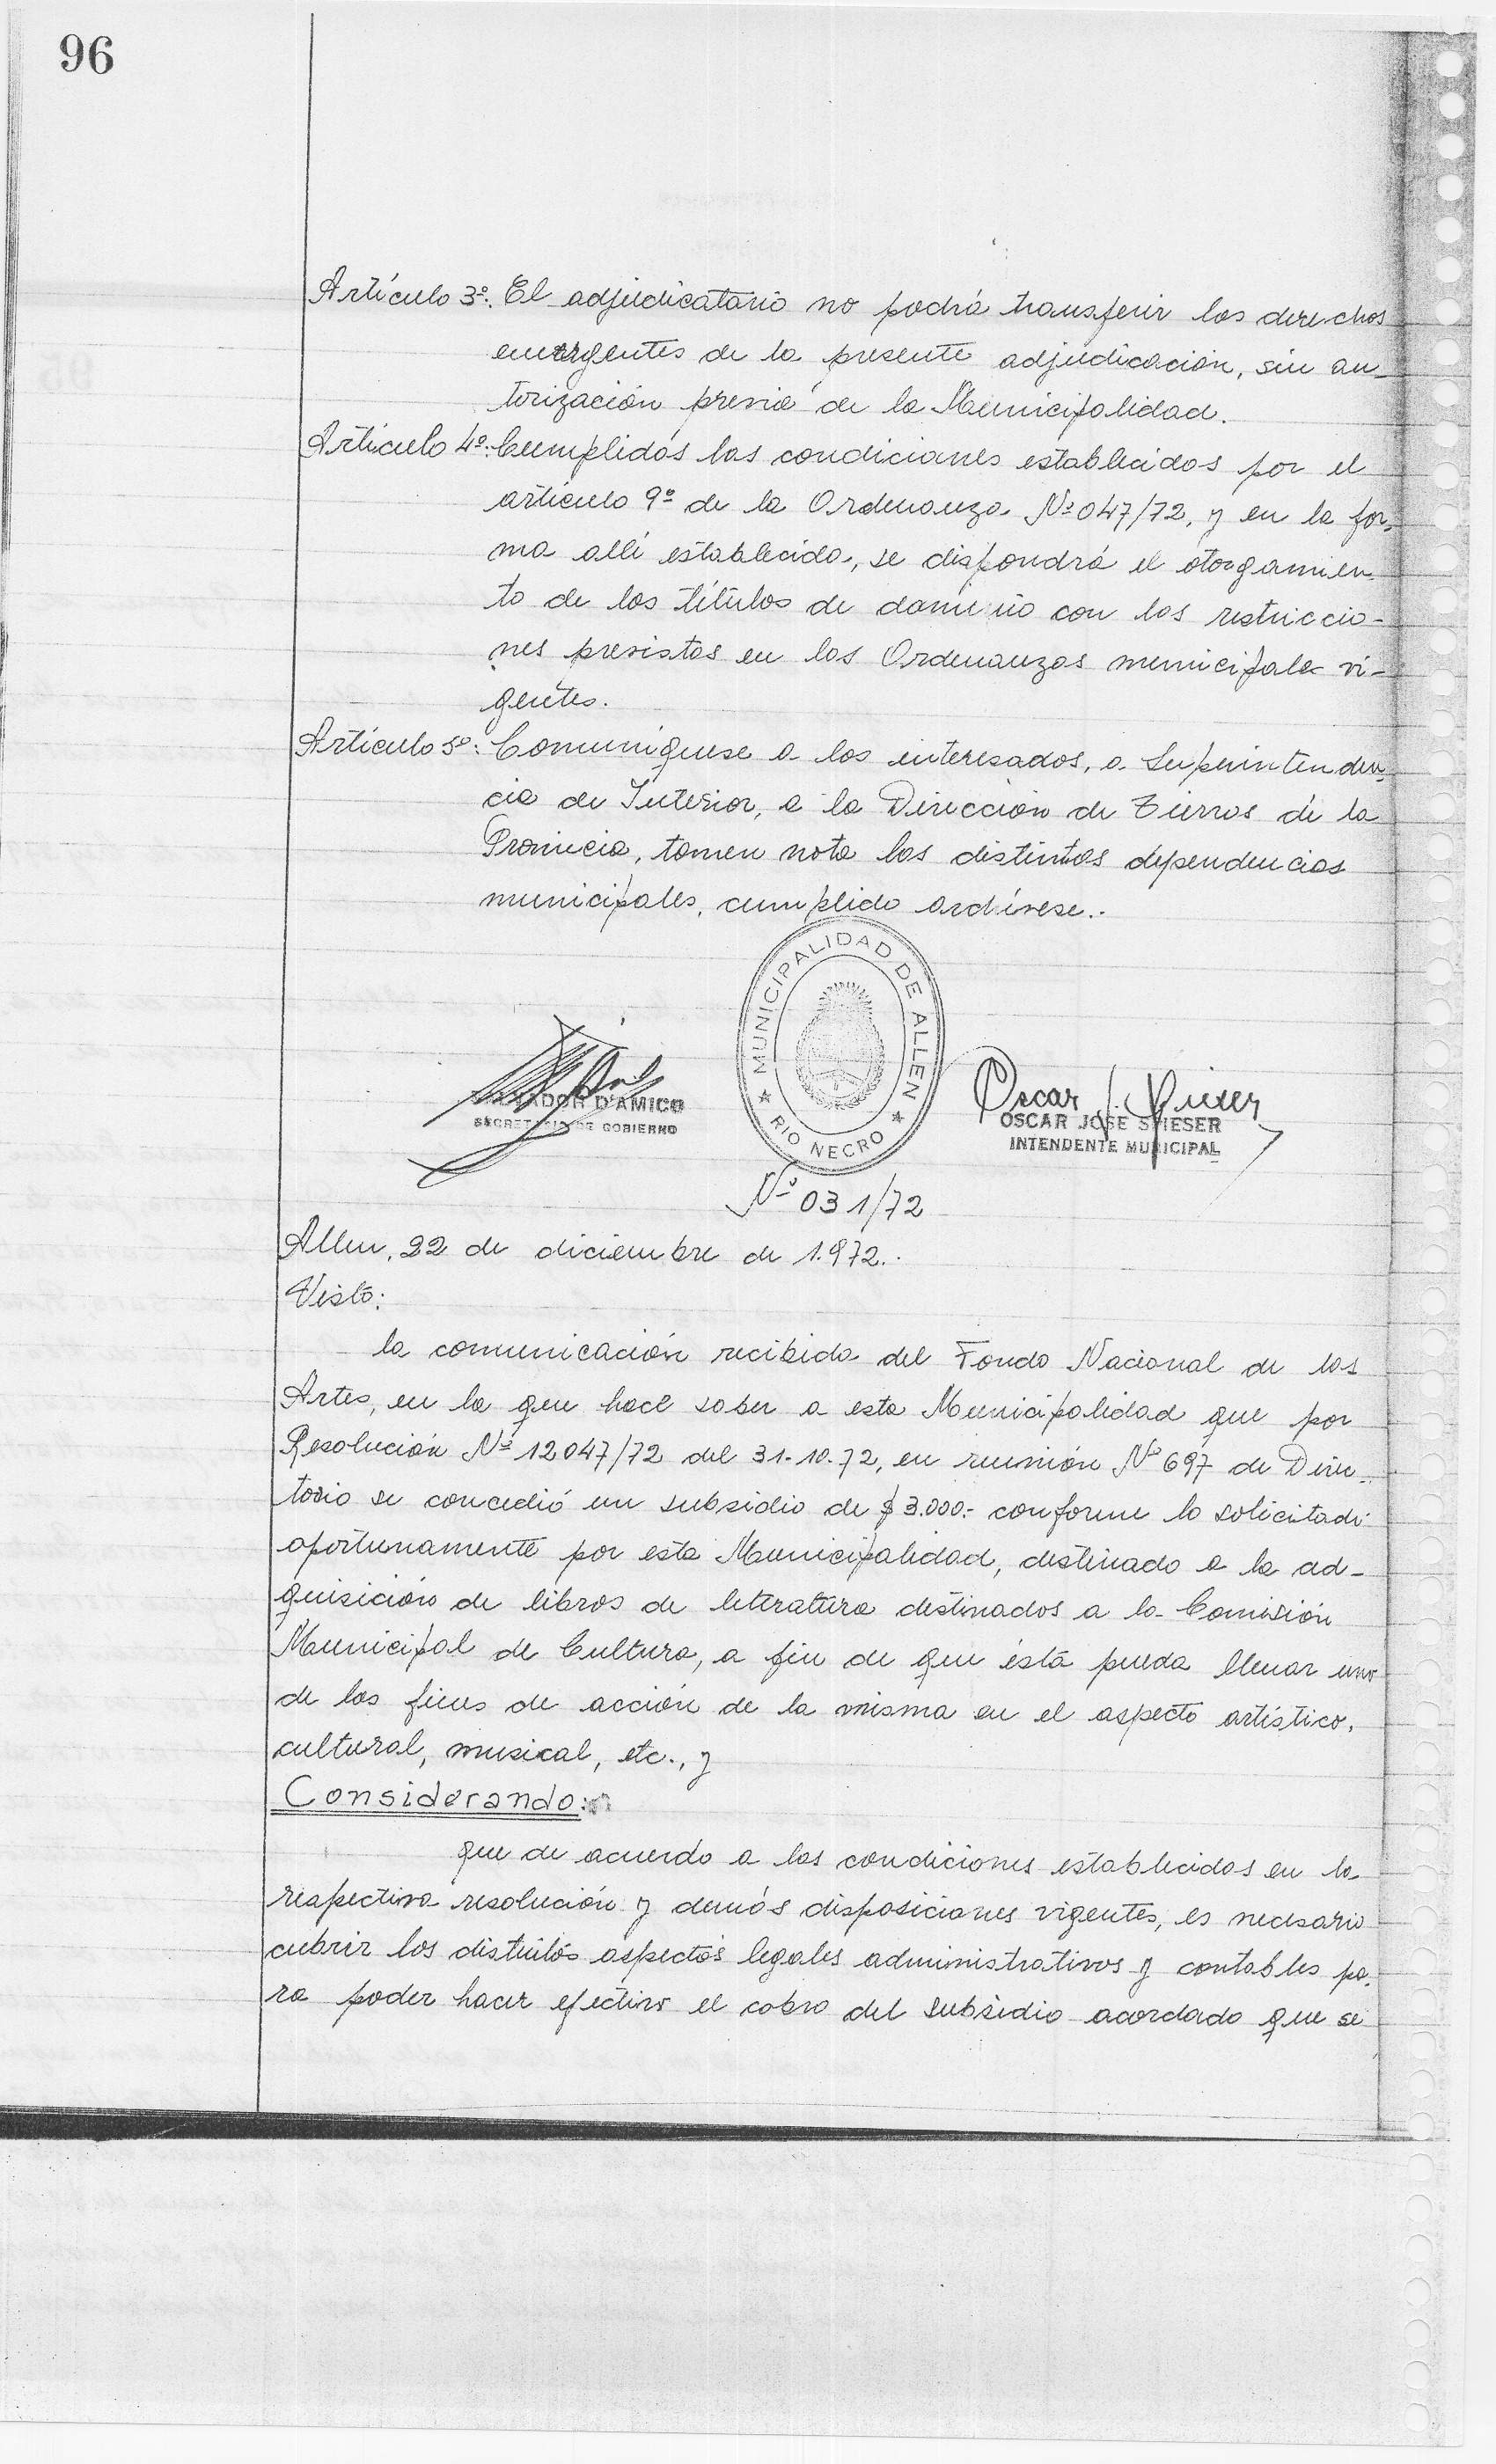 96
Artículo 3º: El adjudicatario no podrá transferir los derechos
emergentes de la presente adjudicación, sin au-
torización previa de la Municipalidad.
Artículo 4º: Cumplidas las condiciones establecidas por el
artículo 9º de la Ordenanza Nº 047/72, y en la for-
ma allí establecida, se dispondrá el otorgamien-
to de los títulos de dominio con las restriccio-
nes previstas en las Ordenanzas municipales vi-
gentes.
Artículo 5º: Comuníquese a los interesados, a Superintenden-
cia de Interior, a la Dirección de Tierras de la
Provincia, tomen nota las distintas dependencias
municipales, cumplido archívese.-
MUNICIPALIDAD DE ALLEN
★ RIO NECRO ★
D'AMICO
SECRETARIO DE GOBIERNO
Oscar J. Spieser
OSCAR JOSE SPIESER
INTENDENTE MUNICIPAL
Nº 031/72
Allen, 22 de diciembre de 1.972.-
Visto:
la comunicación recibida del Fondo Nacional de las
Artes, en la que hace saber a esta Municipalidad que por
Resolución Nº 12047/72 del 31-10-72, en reunión Nº 697 de Direc-
torio se concedió un subsidio de $ 3.000.- conforme lo solicitado
oportunamente por esta Municipalidad, destinado a la ad-
quisición de libros de literatura destinados a la Comisión
Municipal de Cultura, a fin de que ésta pueda llenar uno
de los fines de acción de la misma en el aspecto artístico,
cultural, musical, etc., y
Considerando:
que de acuerdo a las condiciones establecidas en la
respectiva resolución y demás disposiciones vigentes, es necesario
cubrir los distintos aspectos legales administrativos y contables pa-
ra poder hacer efectivo el cobro del subsidio acordado que se